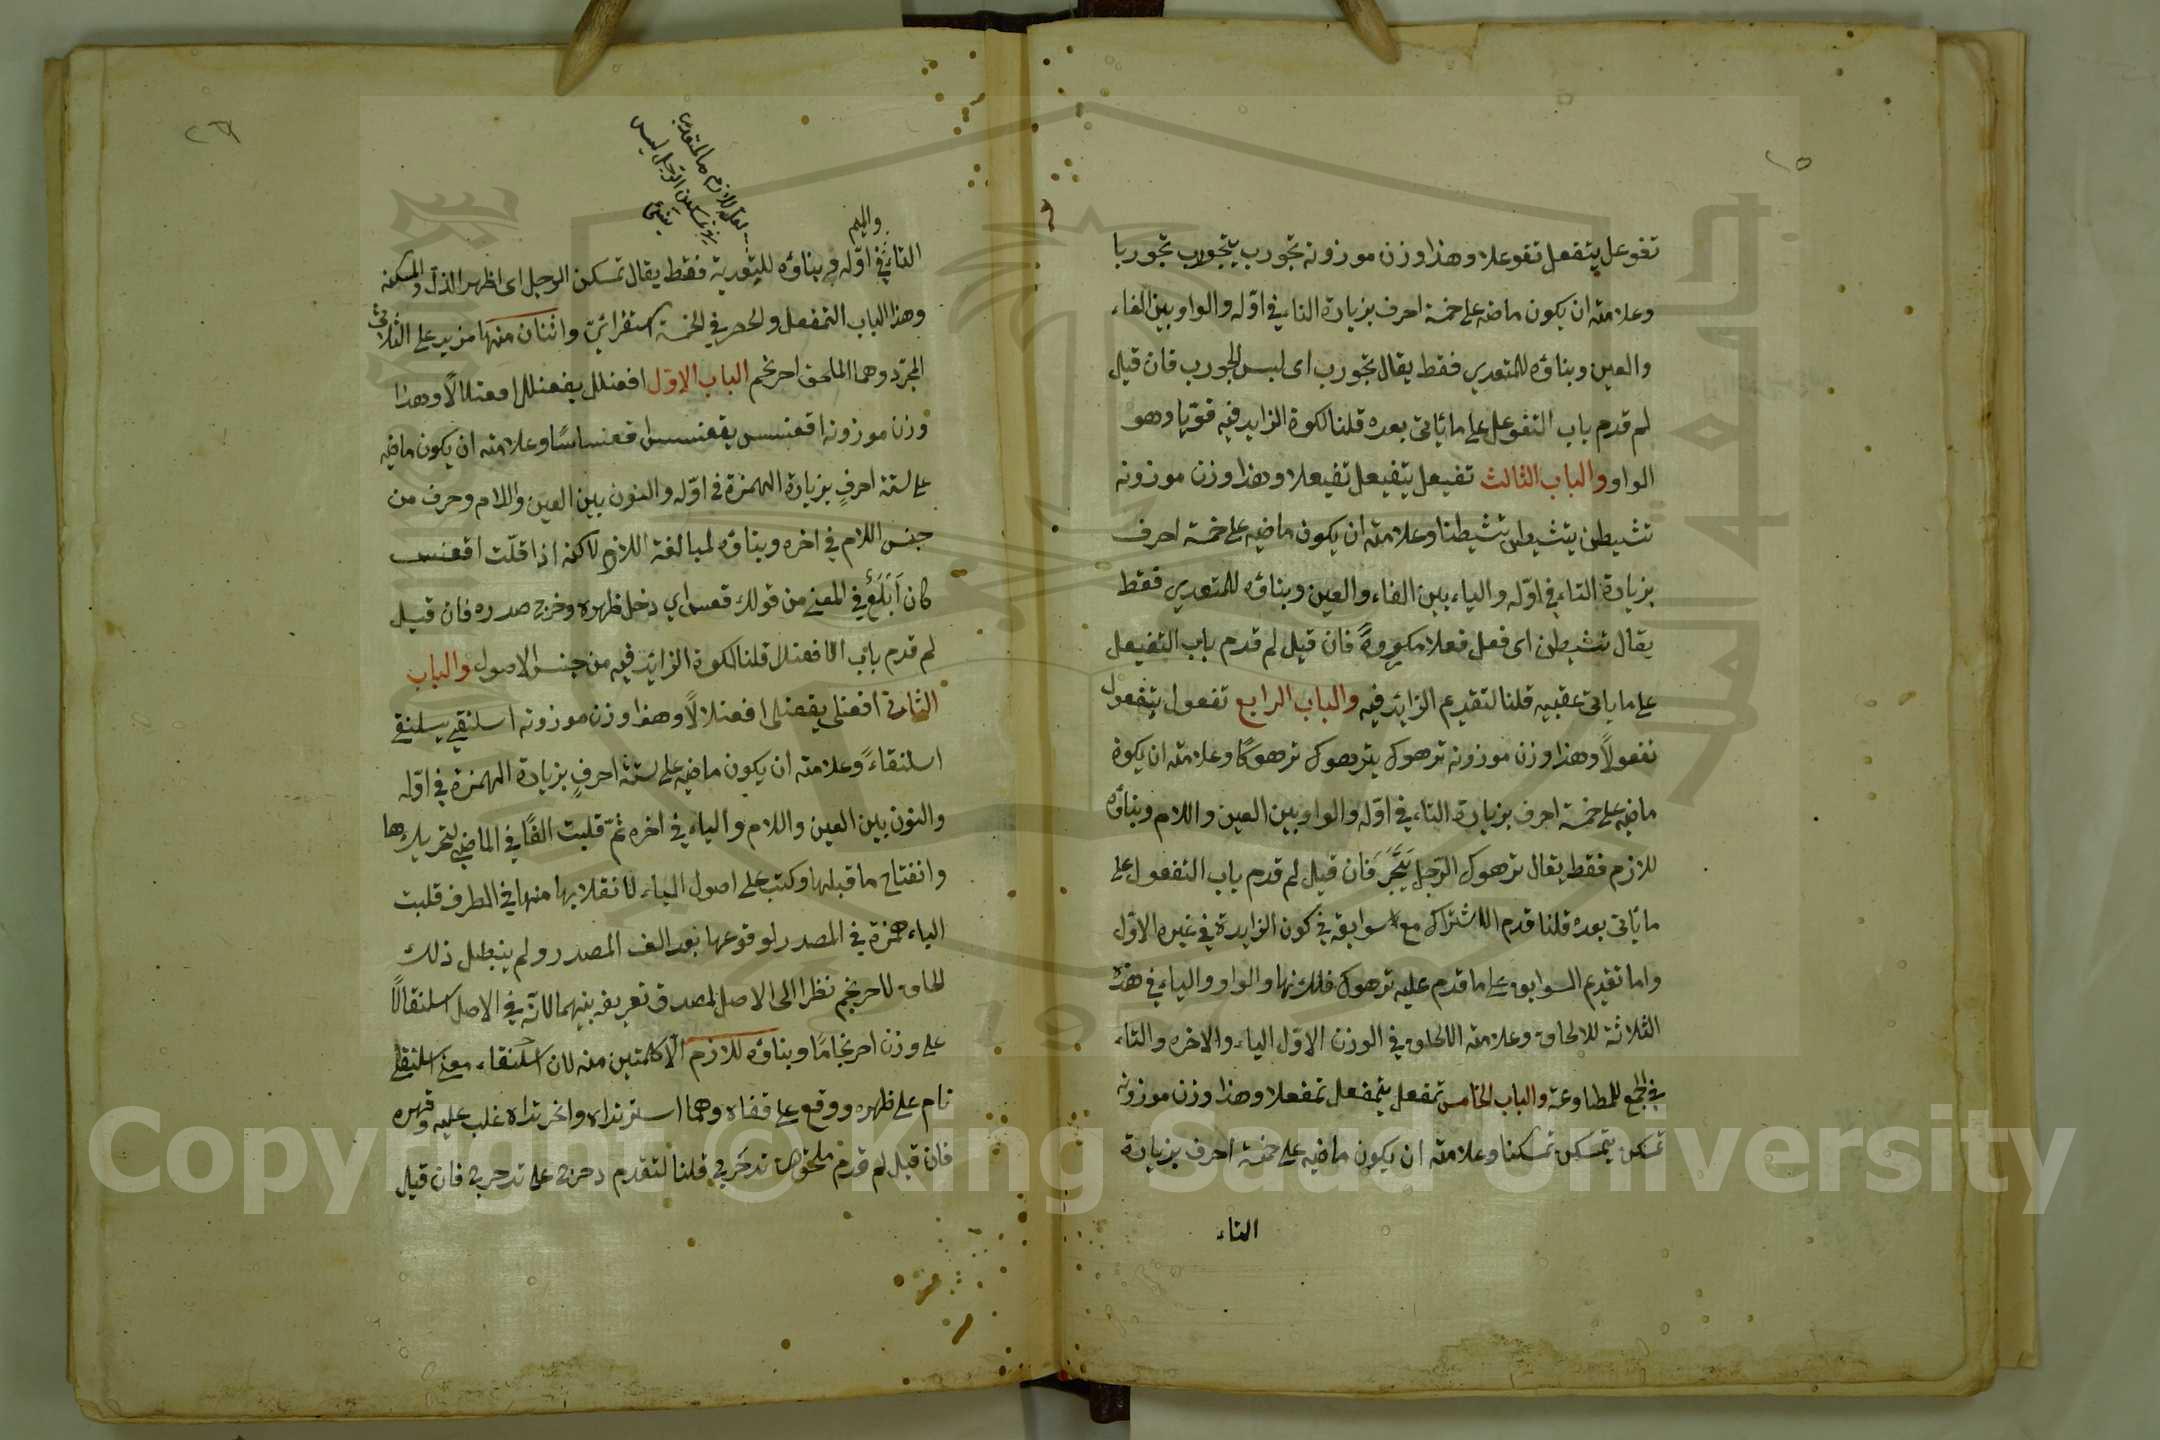 ٢٥
تفوعل يتفعل تفوعلا وهذا وزن موزونه تجورب يتجورب تجوربا
وعلامته ان يكون ماضه على خمسة احرف بزيادة التاء في اوله والواو بين الفاء
والعين وبناؤه للمتعدي فقط يقال تجورب اى لبس الجورب فان قيل
لم قدم باب التفوعل على ما يأتى بعده قلنا لكون الزايد فيه قويا وهو
الواو والباب الثالث تفيعل يتفيعل تفيعلا وهذا وزن موزونه
تشيطن يتشيطن تشيطنا وعلامته ان يكون ماضيه على خمسة احرف
بزيادة التاء في اوّله والياء بين الفاء والعين وبناؤه للمتعدي فقط
يقال تشيطن اى فعل فعلا مكروهًا فان قيل لم قدم باب التفيعل
على ما ياتى عقبيه قلنا لتقديم الزايد فيه والباب الرابع تفعول يتفعول
تفعولاً وهذا وزن موزونه ترهوك يترهوك ترهوكًا وعلامته ان يكون
ماضيه على خمسة احرف بزيادة التاء في اوّله والواو بين العين واللام وبناؤه
للازم فقط يقال ترهوك الرّجل فان قيل لم قدم باب التفعول على
ما يأتى بعده قلنا قدم الاشتراك مع سوابقه في كون الزايدة في غيره الاوّل
واما تقديم السوابق على ما قدم عليه ترهوك فلك نها والواو والياء في هذه
الثلاثة للالحاق وعلامته الالحاق في الوزن الاوّل الياء والاخره والتاء
في الجمع للمطاوعة والباب الخامس تمفعل يتمفعل تمفعلا وهذا وزن موزونه
تمسكن يتمسكن تمسكنا وعلامته ان يكون ماضيه على خمسة احرف بزيادة
التاء
٢٦
لعله للازم
تمسكن الرجل ليس
والميم
التاء في اوّله وبناؤه للتعدية فقط يقال تمسكن الرجل اى اظهر الذل والمسكنة
وهذا الباب التمفعل والحصر في الخمسة استقرائى واثنان منها مزيد على الثلاثى
المجرّد وهما الملحق احرنجم الباب الاوّل افعنلل يفعنلل افعنلالًا وهذا
وزن موزونه اقعنسس يقعنسس اقعنساسًا وعلامته ان يكون ماضيه
على ستة احرفٍ بزيادة الهمزة في اوّله والنون بين العين واللام وحرف من
جنس اللام في اخره وبناؤه لمبالغة اللازم لاكنه اذا قلت اقعنسس
كان اَبْلَغُ في المعنى من قولك قعس اي دخل ظهره وخرج صدره فان قيل
لم قدم باب الافعنلال قلنا لكون الزايد فيه من جنس الاصول والباب
الثانى افعنلى يفعنلى افعنلالًا وهذا وزن موزونه اسلنقى يسلنقى
اسلنقاءً وعلامته ان يكون ماضيه على ستّة احرفٍ بزيادة الهمزة في اوّله
والنون بين العين واللام والياء في اخره ثمّ قلبت الفًا في الماضي لتحريكها
وانفتاح ما قبلها وكتب على اصول الياء لانقلابها منها في الطرف قلبت
الياء همزة في المصدر لوقوعها بعد الف المصدر ولم يبطل ذلك
الحاق لاحرنجم نظرا الى الاصل لصدق تعريفه بينهما لانّه في الاصل اسلنقالًا
على وزن احرنجامًا وبناؤه للازم الّا كلمتين منه لان اسلنقاء معنى اسلنقى
نام على ظهره ووقع على قفاه وهما استرنداه واغرنداه غلب عليه وقهره
فان قيل لم قدم ملحق تدحرج قلنا لتقدم دحرج على تدحرج فان قيل
Copyright © King Saud University
1957